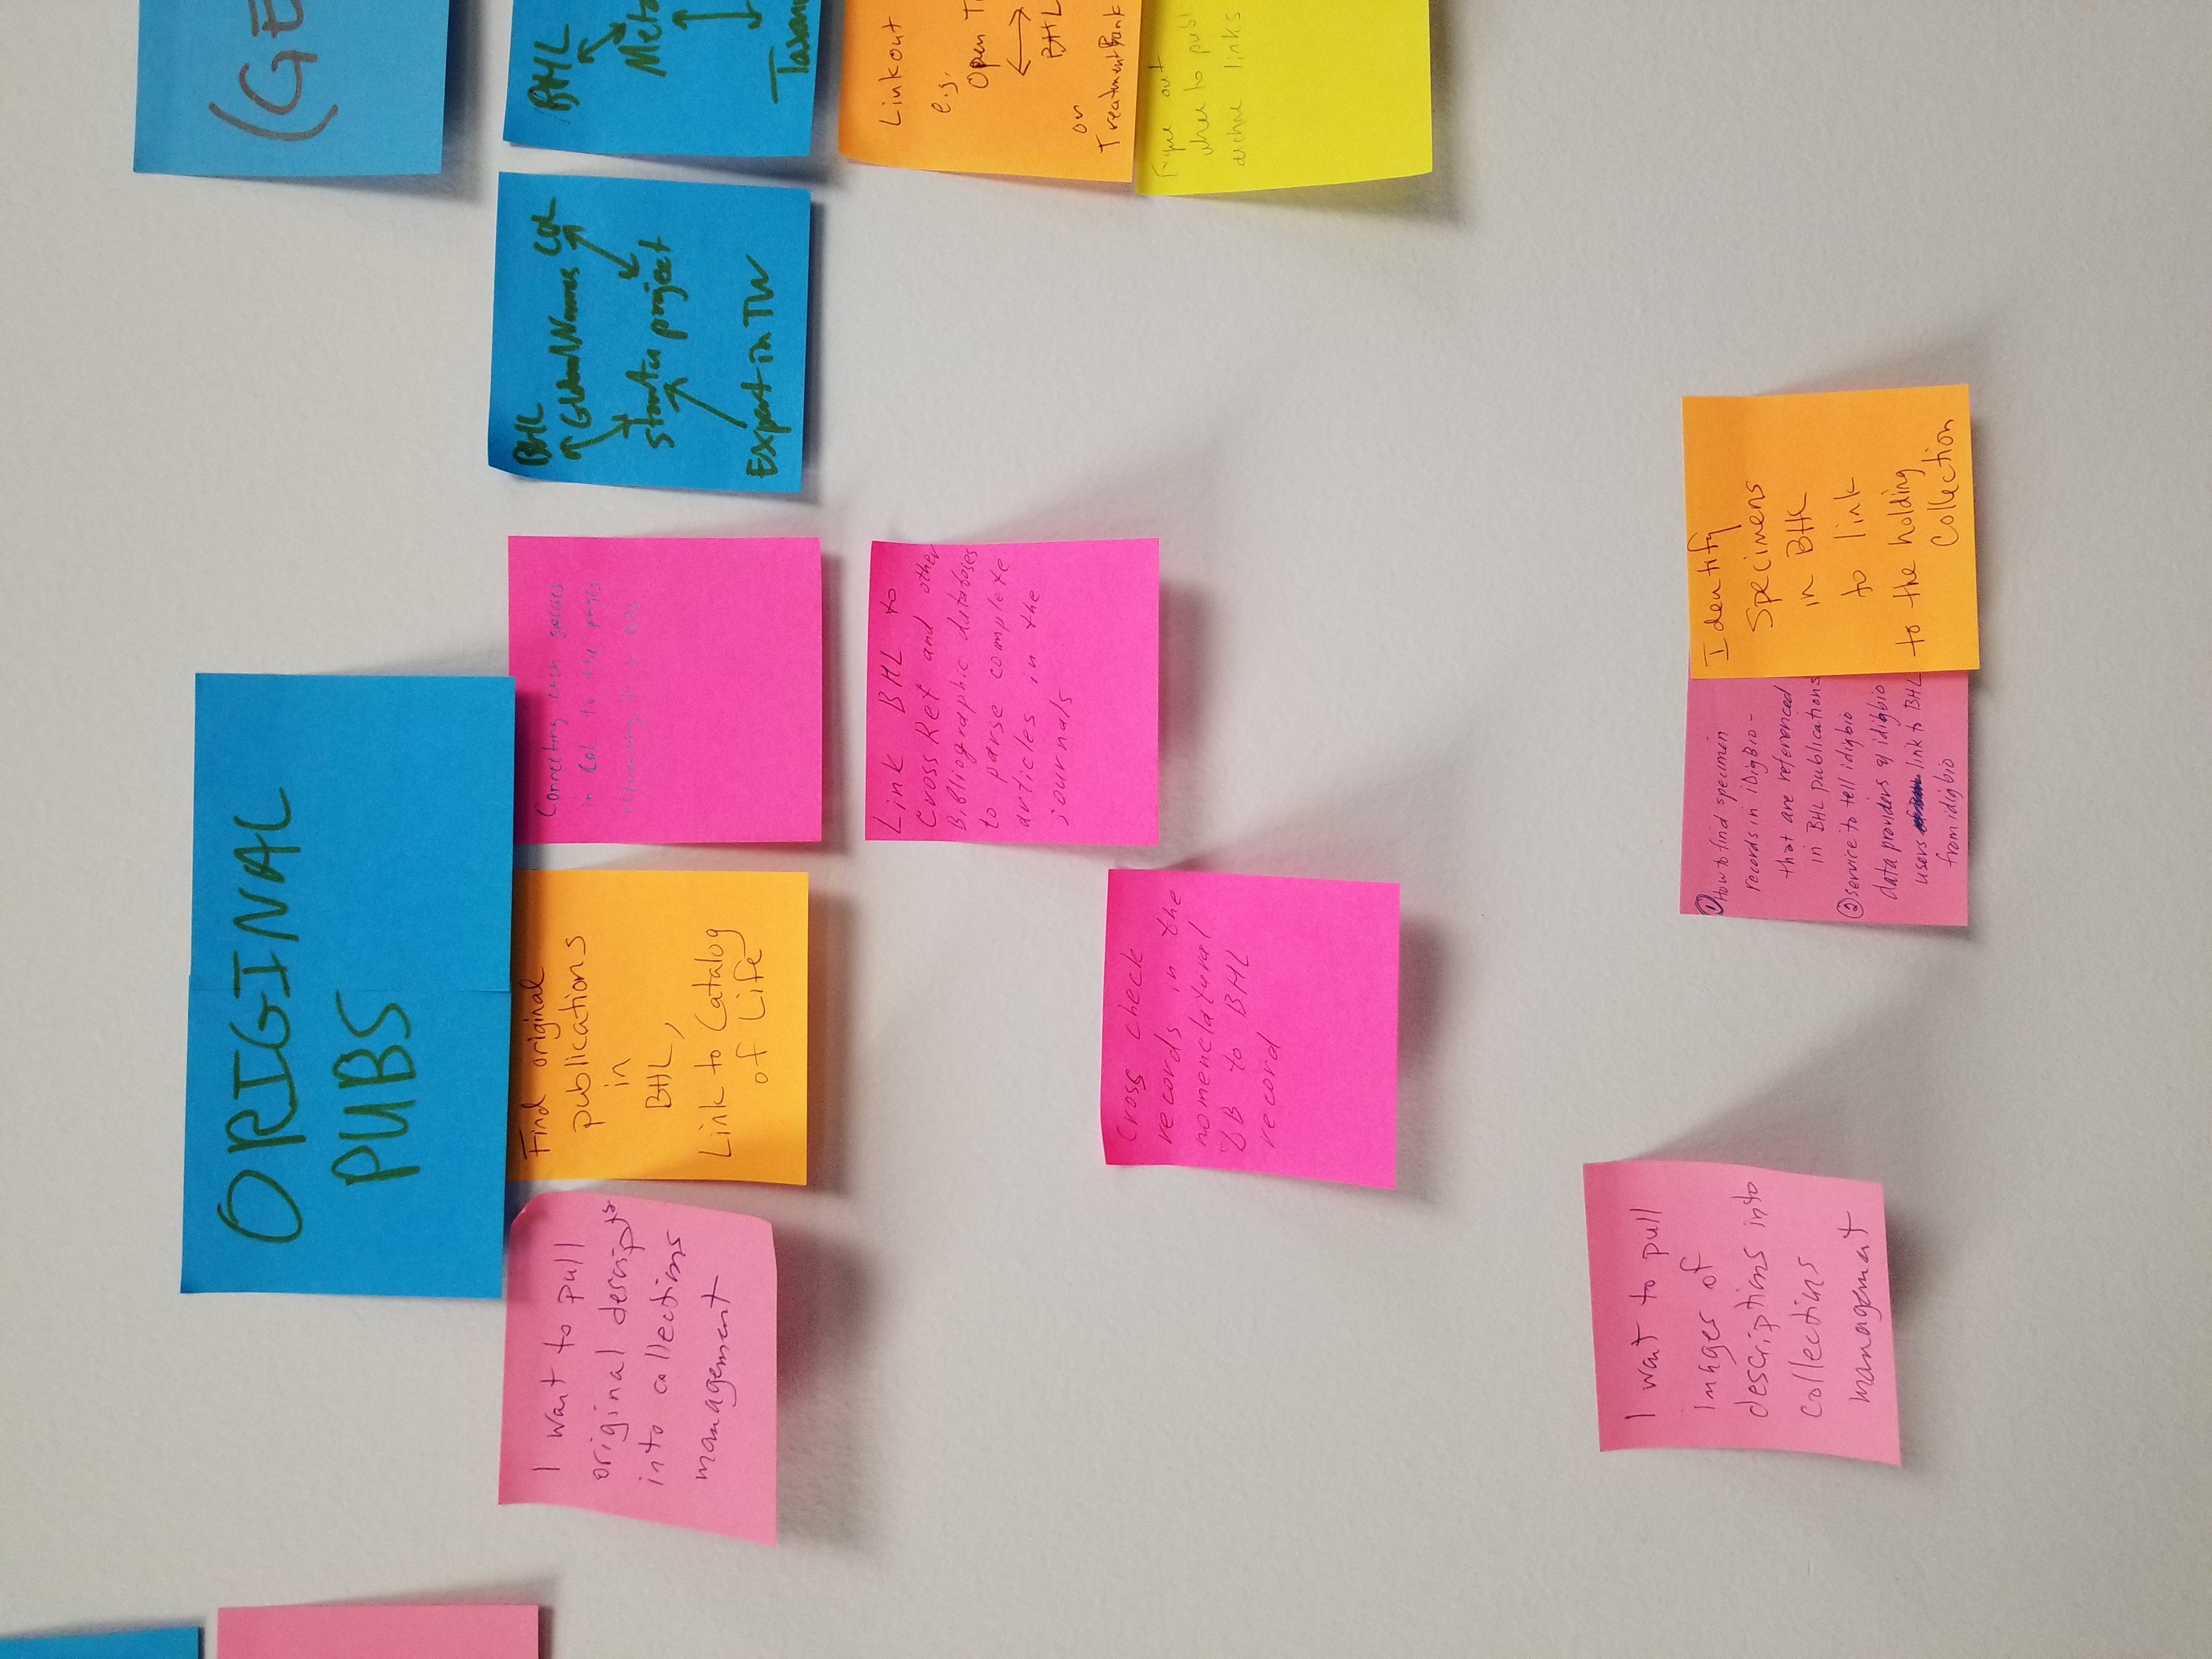 ORIGINAL
PUBS
(GE
I want to pull
original descipts
into collections
management
Find original
publications
in
BHL,
Link to Catalog
of Life
Connecting each species
in CoL to the pages
referencing it in BHL
BHL
Global Names
COL
starter project
Expert in TW
BHL
Meta
Taxon
Link BHL to
CrossRef and other
Bibliographic databases
to parse complete
articles in the
journals
Linkout
e.g.
Open T
BHL
or
TreatmentBank
Cross check
records in the
nomenclatural
DB to BHL
record
Figure out
where to publ
archive links
I want to pull
images of
descriptions into
collections
management
① How to find specimen
records in iDigBio -
that are referenced
in BHL publications
② service to tell idigbio
data providers & idigbio
users link to BHL
from idigbio
Identify
Specimens
in BHL
to link
to the holding
Collection